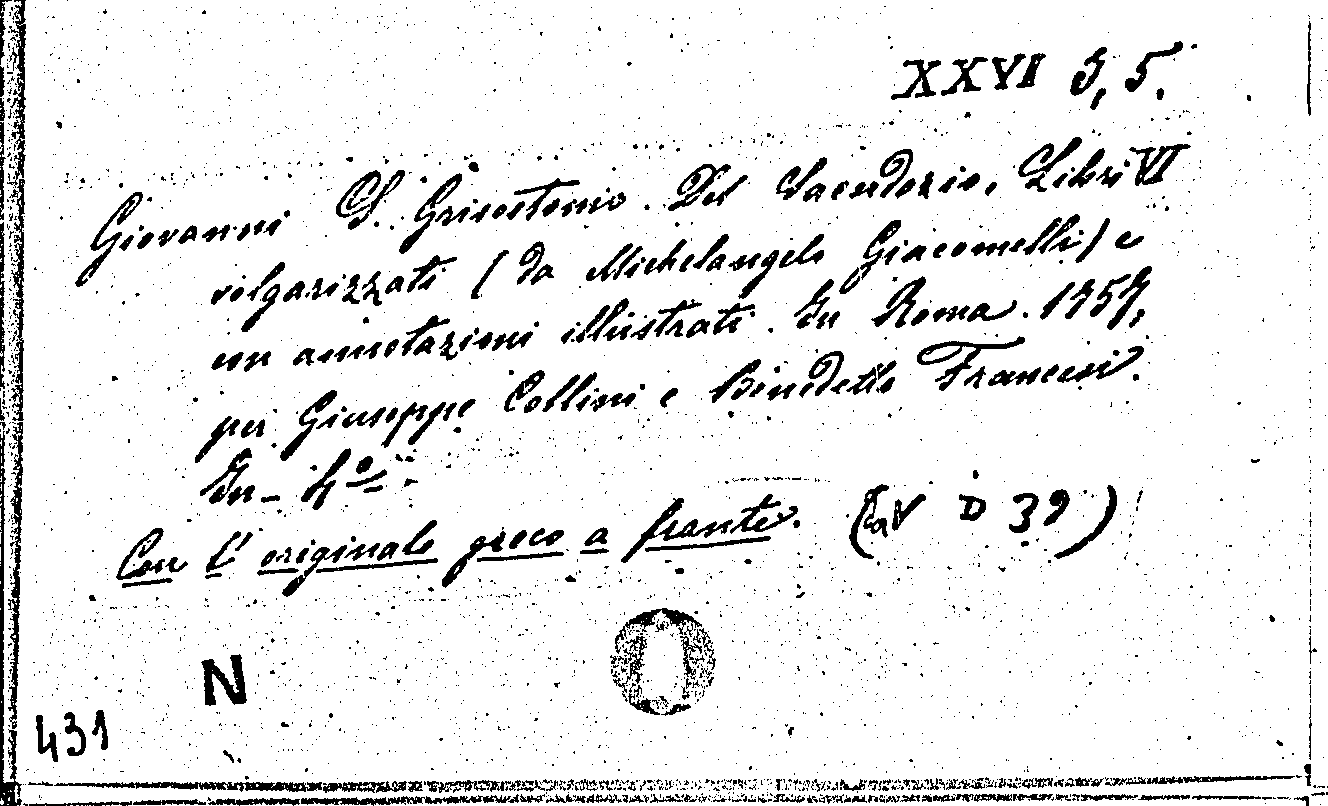 XXVI J, 5.
Giovanni S. Grisostomo. Del Sacerdozio. Libri VI
volgarizzati (da Michelangelo Giacomelli) e
con annotazioni illustrati. In Roma. 1757,
per Giuseppe Collini e Benedetto Francesi.
In-4º.
Con l'originale greco a fronte. ( D 39)
N
431